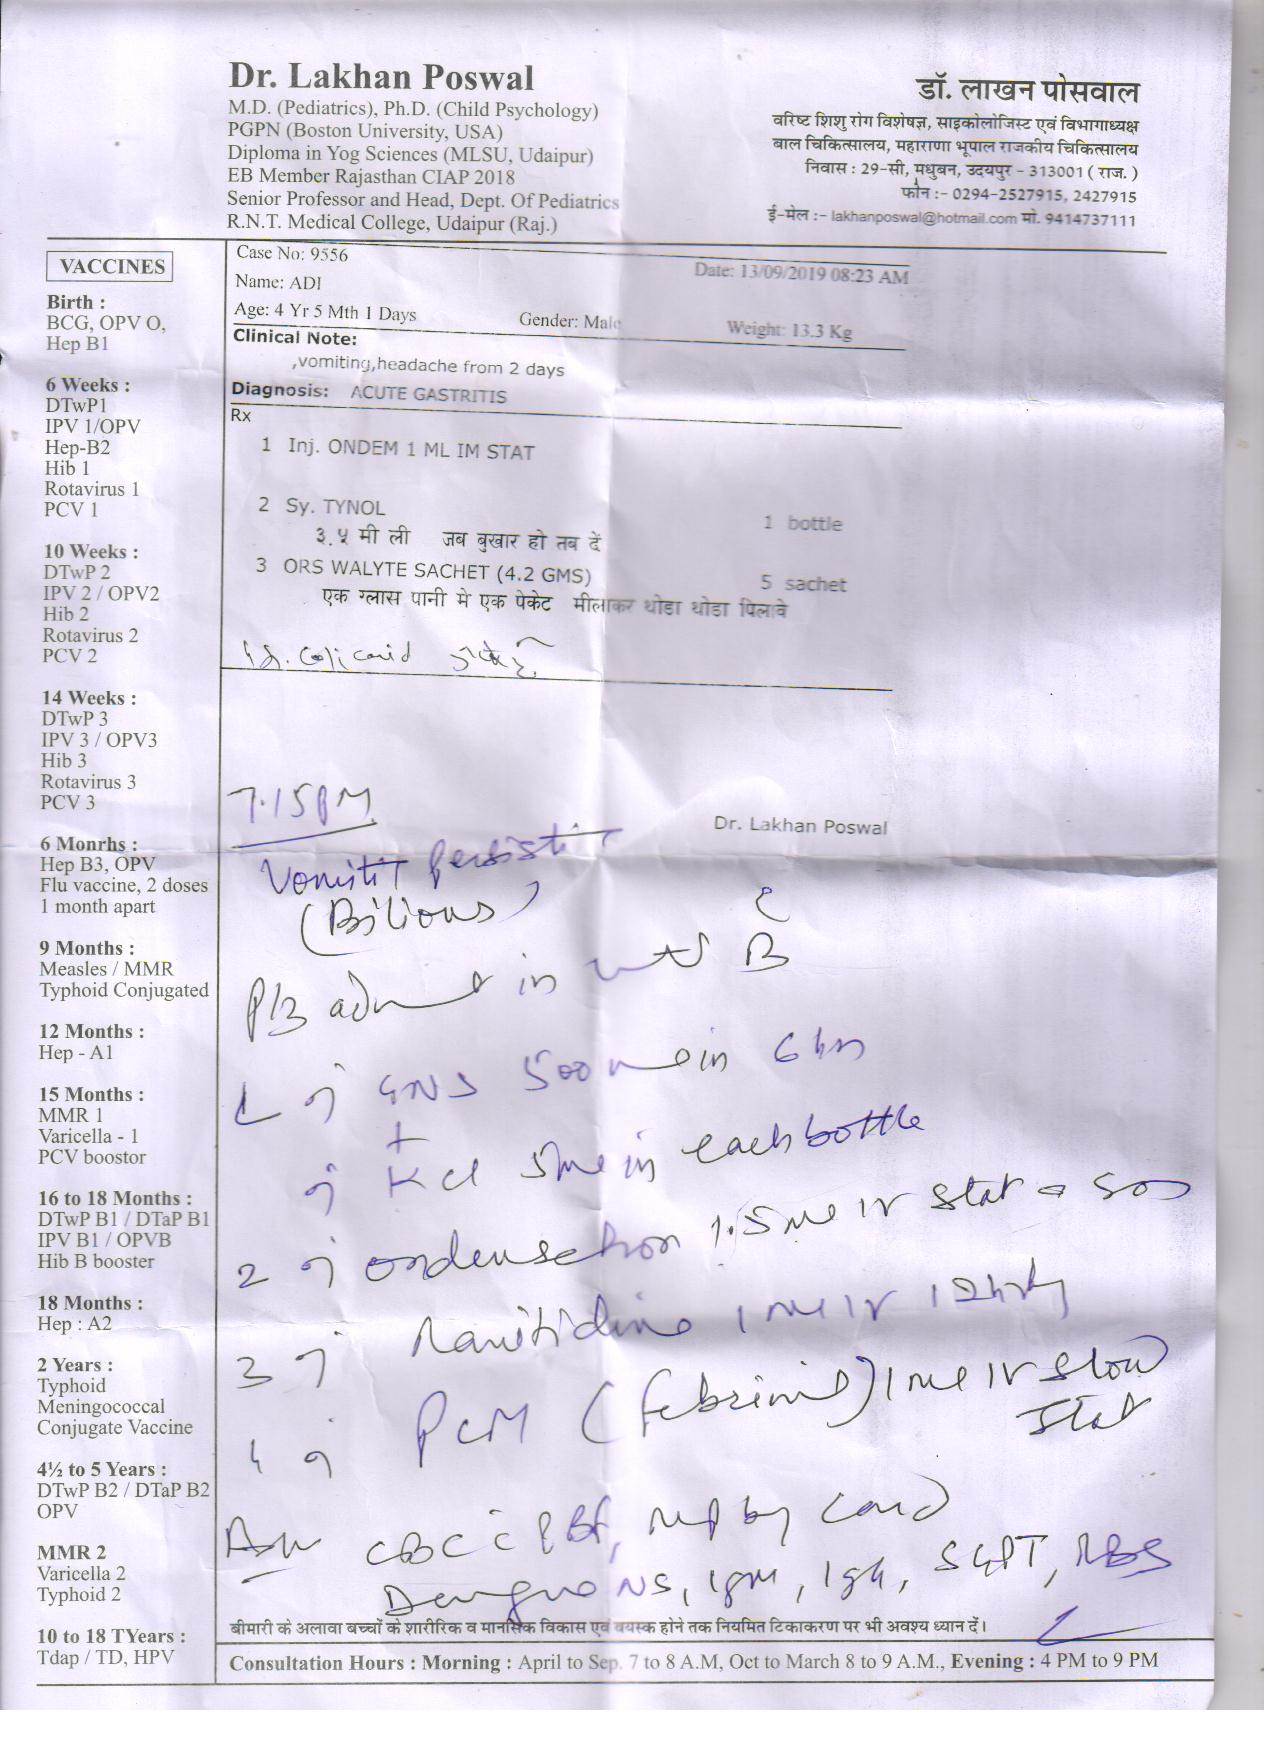 Dr. Lakhan Poswal
M.D. (Pediatrics), Ph.D. (Child Psychology)
PGPN (Boston University, USA)
Diploma in Yog Sciences (MLSU, Udaipur)
EB Member Rajasthan CIAP 2018
Senior Professor and Head, Dept. Of Pediatrics
R.N.T. Medical College, Udaipur (Raj.)
डॉ. लाखन पोसवाल
वरिष्ट शिशु रोग विशेषज्ञ, साइकोलोजिस्ट एवं विभागाध्यक्ष
बाल चिकित्सालय, महाराणा भूपाल राजकीय चिकित्सालय
निवास : 29-सी, मधुबन, उदयपुर - 313001 ( राज. )
फोन :- 0294-2527915, 2427915
ई-मेल :- lakhanposwal@hotmail.com मो. 9414737111
VACCINES
Birth :
BCG, OPV O,
Hep B1
6 Weeks :
DTwP1
IPV 1/OPV
Hep-B2
Hib 1
Rotavirus 1
PCV 1
10 Weeks :
DTwP 2
IPV 2 / OPV2
Hib 2
Rotavirus 2
PCV 2
14 Weeks :
DTwP 3
IPV 3 / OPV3
Hib 3
Rotavirus 3
PCV 3
6 Monrhs :
Hep B3, OPV
Flu vaccine, 2 doses
1 month apart
9 Months :
Measles / MMR
Typhoid Conjugated
12 Months :
Hep - A1
15 Months :
MMR 1
Varicella - 1
PCV boostor
16 to 18 Months :
DTwP B1 / DTaP B1
IPV B1 / OPVB
Hib B booster
18 Months :
Hep : A2
2 Years :
Typhoid
Meningococcal
Conjugate Vaccine
4½ to 5 Years :
DTwP B2 / DTaP B2
OPV
MMR 2
Varicella 2
Typhoid 2
10 to 18 TYears :
Tdap / TD, HPV
Case No: 9556
Date: 13/09/2019 08:23 AM
Name: ADI
Age: 4 Yr 5 Mth 1 Days Gender: Male Weight: 13.3 Kg
Clinical Note:
,vomiting,headache from 2 days
Diagnosis: ACUTE GASTRITIS
Rx
1 Inj. ONDEM 1 ML IM STAT
2 Sy. TYNOL 1 bottle
३.५ मी ली जब बुखार हो तब दें
3 ORS WALYTE SACHET (4.2 GMS) 5 sachet
एक ग्लास पानी मे एक पेकेट मीलाकर थोडा थोडा पिलावे
Colicaid
Dr. Lakhan Poswal
7.15 PM
Vomiting persisting
(Bilious)
Plz admit in
1 GNS 500 ml in 6 hrs
+
KCl 5ml in each bottle
2 ondensetron 1.5 ml IV stat & SOS
3 Ranitidine 1 ml IV 12 hrly
4 PCM (Febrinil) 1 ml IV slow
stat
Adv CBC c PBF, MP by Card
Dengue NS, IgM, IgG, SGPT, RBS
बीमारी के अलावा बच्चों के शारीरिक व मानसिक विकास एवं वयस्क होने तक नियमित टिकाकरण पर भी अवश्य ध्यान दें।
Consultation Hours : Morning : April to Sep. 7 to 8 A.M, Oct to March 8 to 9 A.M., Evening : 4 PM to 9 PM